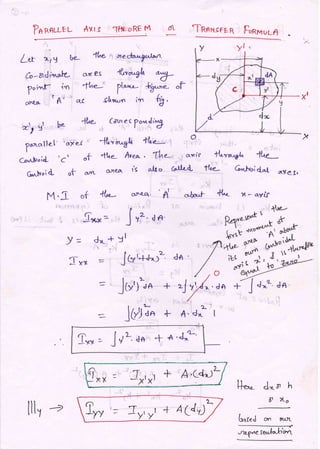 PARALLEL AXIS THEOREM or TRANSFER FORMULA.
Let x,y be the rectangular
Co-ordinate axes through any
point in the plane figure of
area 'A' as shown in fig.
x', y' be the corresponding
parallel 'axes' through the
Centroid 'C' of the Area. The axis through the
Centroid of an area is also called the Centroidal axes.
Y
y'
x
dy
x'
dA
C
y'
y
x'
d
dx
O
x
M.I of the area 'A' about the x-axis
Ixx = ∫y². dA
y = dx + y'
Ixx = ∫(y'+dx)² dA.
= ∫(y')². dA + 2∫y'.dx.dA + ∫dx². dA
0
= ∫(y')². dA + A.dx²
Represents the
first moment of
the area 'A' about
its own centroidal
axis x', & is therefore
equal to 'Zero'
∴ Ixx = ∫y'². dA + A.dx²
Ixx = Ix'x' + A.(dx)²
IIIly → Iyy = Iy'y' + A(dy)²
Here dx is h
is x₀
based on our
representation